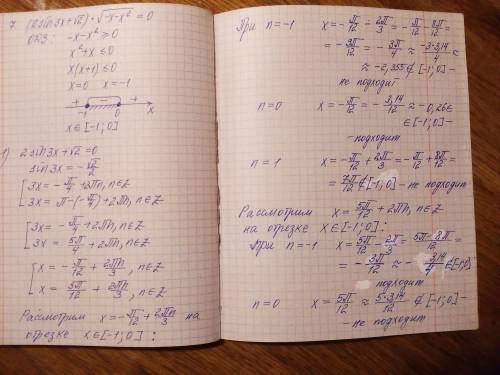 7 (2sin3x+√2)·√-x-x² = 0
ОДЗ: -x-x² ≥ 0
x²+x ≤ 0
x(x+1) ≤ 0
x=0 x=-1
+ - +
-1 0 x
x∈[-1;0]
1) 2sin3x+√2=0
sin3x=-√2/2
[3x=-π/4+2πn, n∈Z
[3x=π-(-π/4)+2πn, n∈Z
[3x=-π/4+2πn, n∈Z
[3x=5π/4+2πn, n∈Z
[x=-π/12+2πn/3, n∈Z
[x=5π/12+2πn/3, n∈Z
Рассмотрим x=-π/12+2πn/3 на
отрезке x∈[-1;0]:
При n=-1 x=-π/12-2π/3=-π/12-8π/12=
=-9π/12=-3π/4≈-3·3,14/4≈
≈-2,355∉[-1;0]-
не подходит
n=0 x=-π/12=-3,14/12≈-0,26∈
∈[-1;0]-
-подходит
n=1 x=-π/12+2π/3=-π/12+8π/12=
=7π/12∉[-1;0]-не подходит
Рассмотрим x=5π/12+2πn, n∈Z
на отрезке x∈[-1;0]:
При n=-1 x=5π/12-2π/3=5π-8π/12=
=-3π/12≈-3,14/4∈[-1;0]-
подходит
n=0 x=5π/12≈5·3,14/12∉[-1;0]-
-не подходит